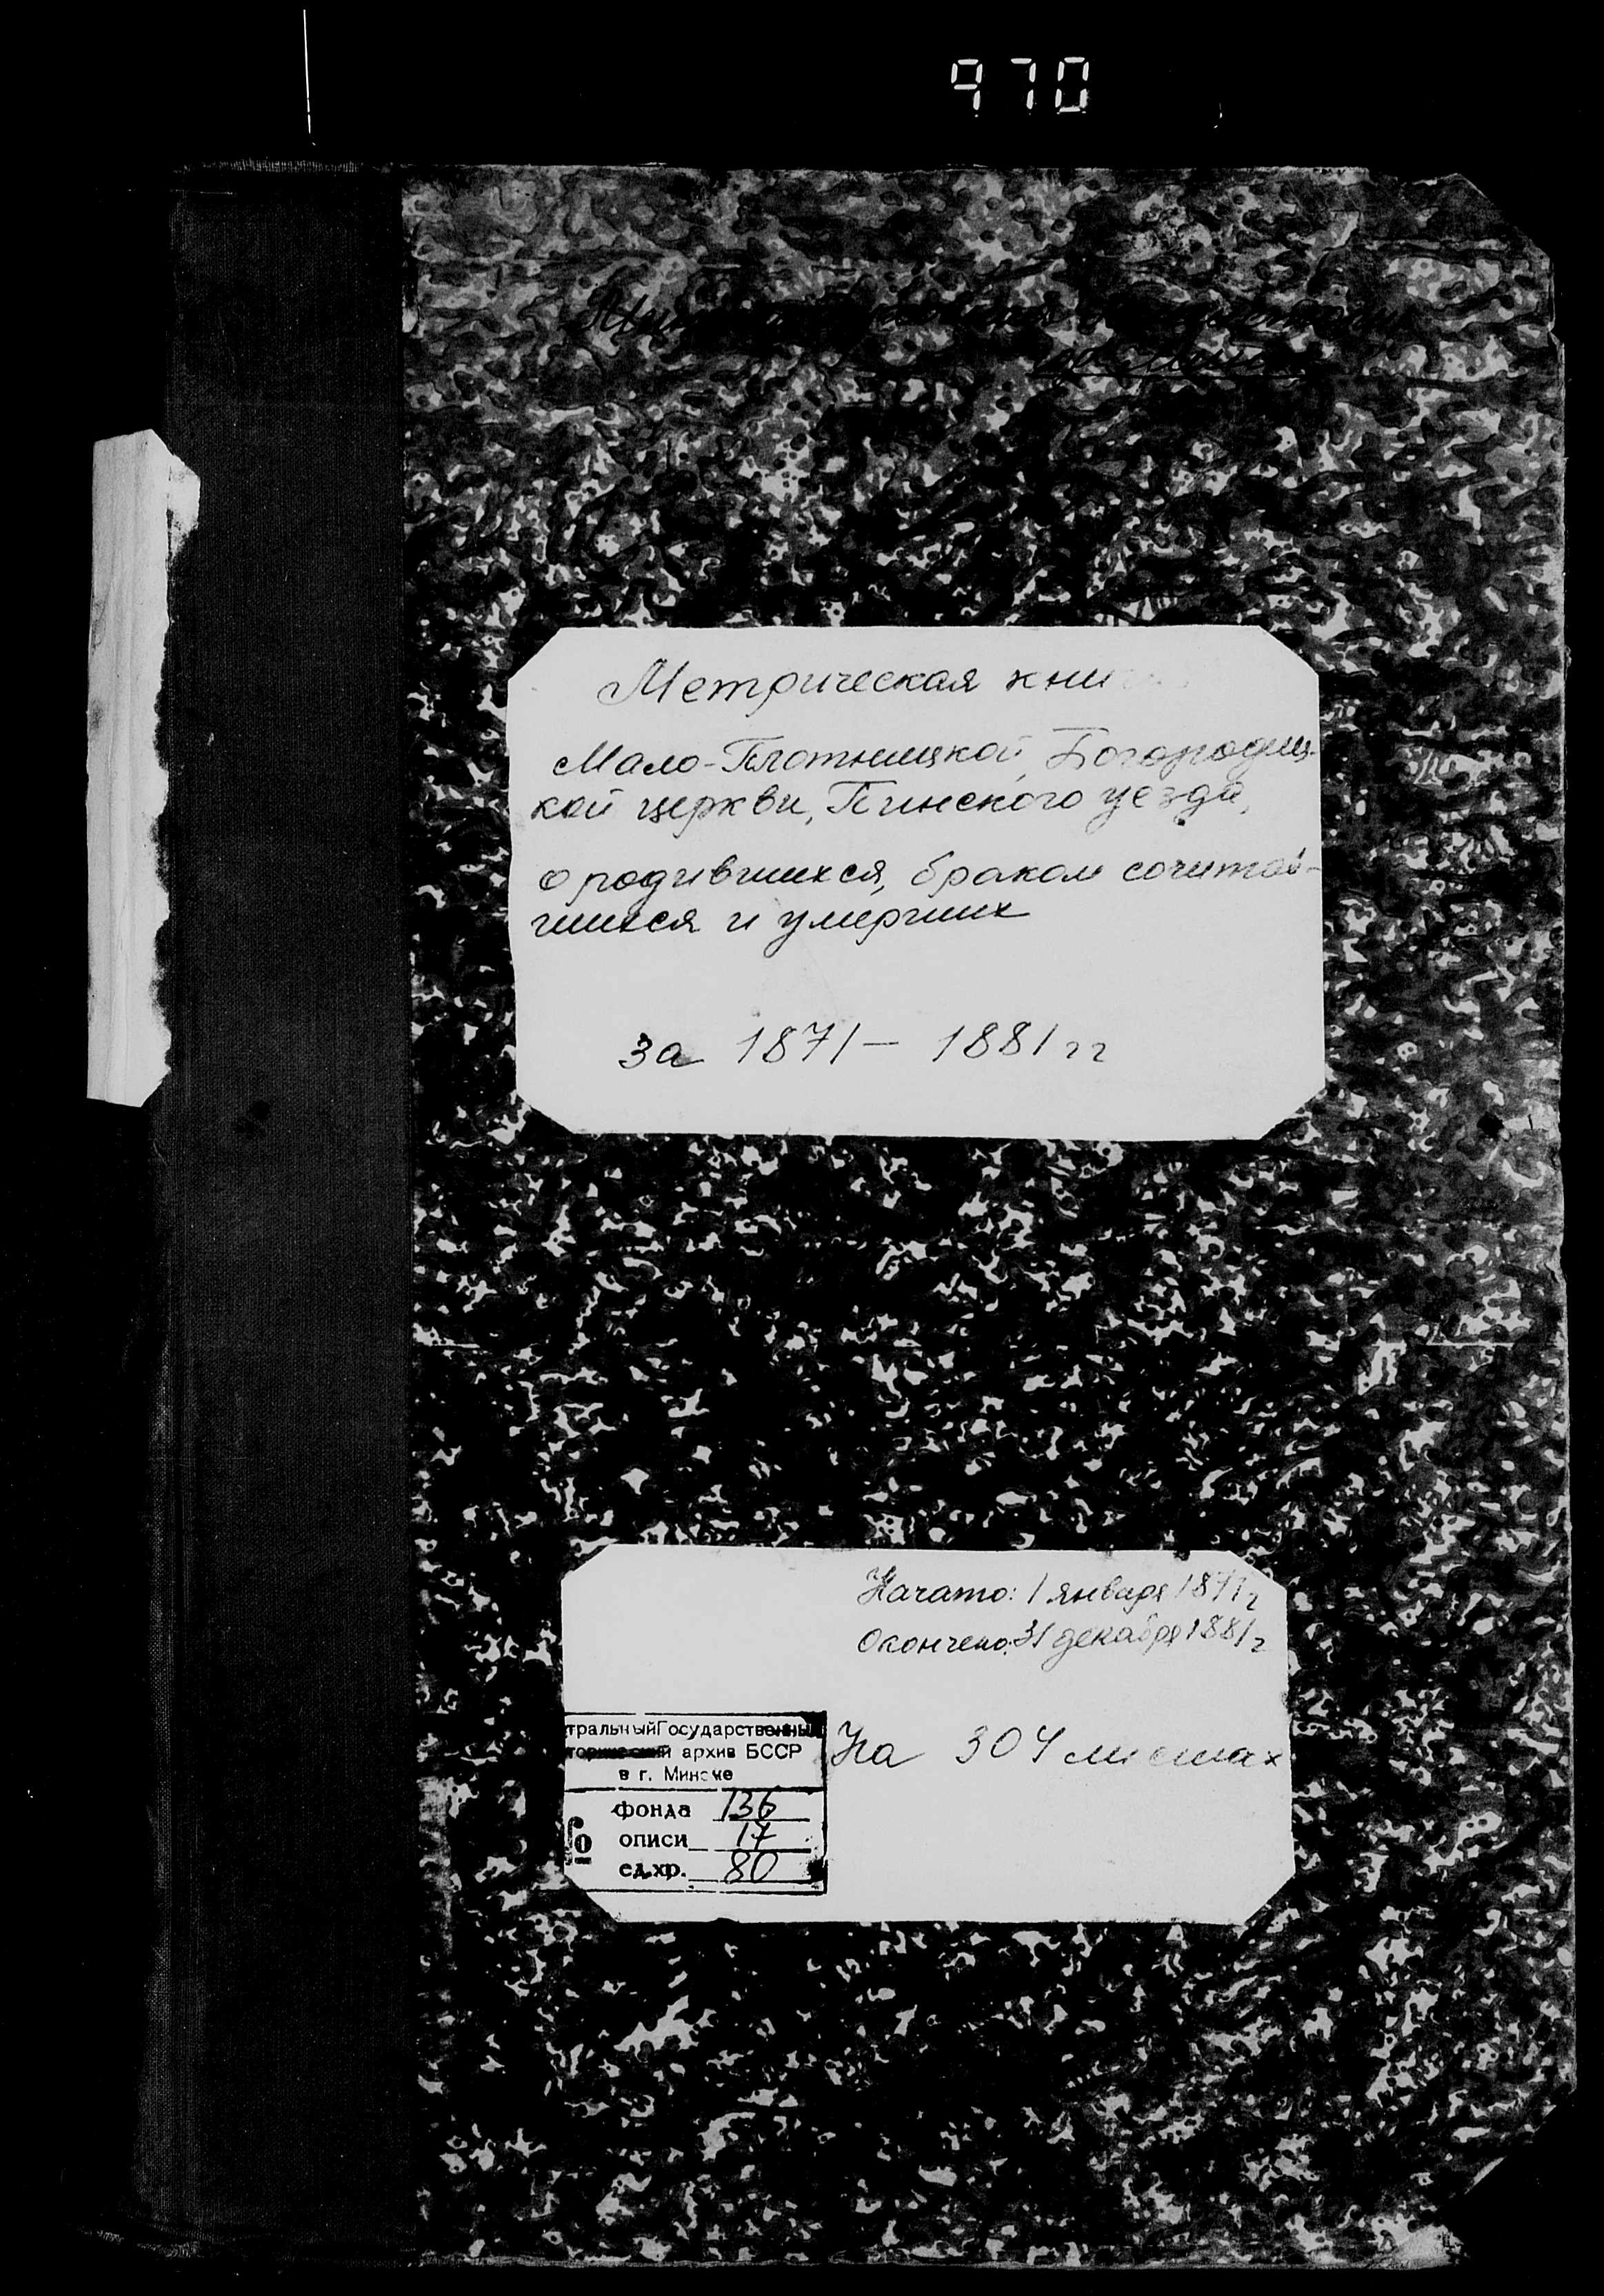 970
Метрическая кни
Мало-Плотницкой Богородиц-
кой церкви, Пинского уезда,
о родившихся, браком сочитав-
шихся и умерших
за 1871 — 1881 гг
Начато: 1 января 1871 г
Окончено: 31 декабря 1881 г
На 304 листах
тральный Государственный
торический архив БССР
в г. Минске
№
фонда 136
описи 17
ед.хр. 80